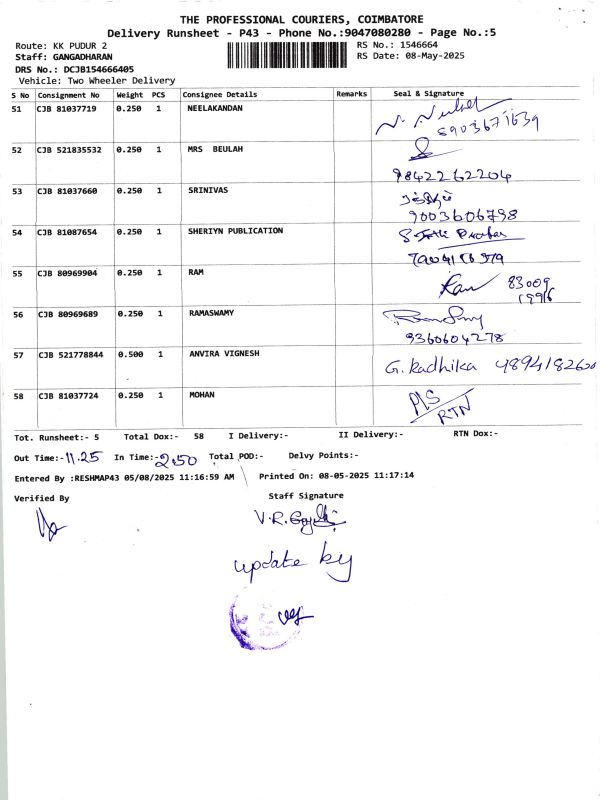 THE PROFESSIONAL COURIERS, COIMBATORE
Delivery Runsheet - P43 - Phone No.:9047080280 - Page No.:5
Route: KK PUDUR 2 RS No.: 1546664
Staff: GANGADHARAN RS Date: 08-May-2025
DRS No.: DCJB154666405
Vehicle: Two Wheeler Delivery
S No Consignment No Weight PCS Consignee Details Remarks Seal & Signature
51 CJB 81037719 0.250 1 NEELAKANDAN
52 CJB 521835532 0.250 1 MRS BEULAH
9842262204
53 CJB 81037660 0.250 1 SRINIVAS
9003606798
54 CJB 81087654 0.250 1 SHERIYN PUBLICATION
55 CJB 80969904 0.250 1 RAM
Ram 83009
19916
56 CJB 80969689 0.250 1 RAMASWAMY
9360604278
57 CJB 521778844 0.500 1 ANVIRA VIGNESH
G. Radhika 4894182620
58 CJB 81037724 0.250 1 MOHAN
P/S
RTN
Tot. Runsheet:- 5 Total Dox:- 58 I Delivery:- II Delivery:- RTN Dox:-
Out Time:-11.25 In Time:-2.50 Total POD:- Delvy Points:-
Entered By :RESHMAP43 05/08/2025 11:16:59 AM Printed On: 08-05-2025 11:17:14
Verified By Staff Signature
update by